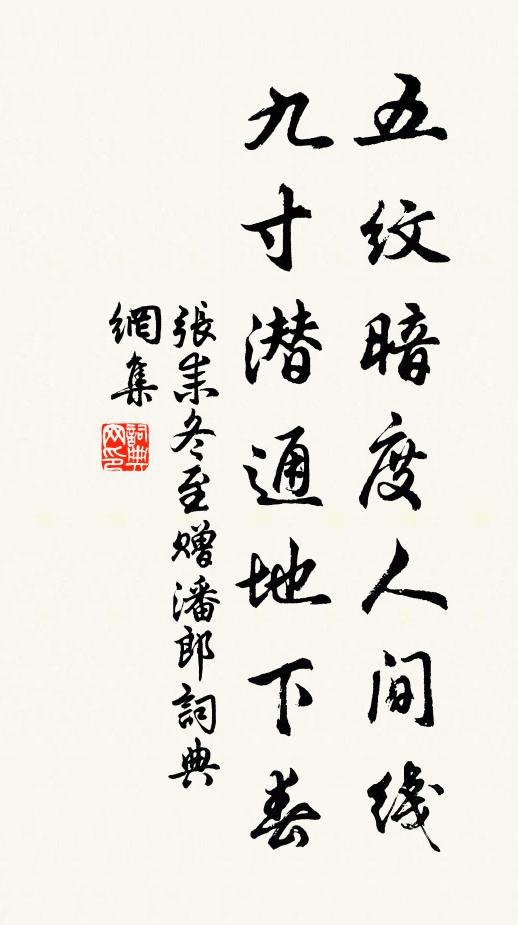 五纹暗度人间线
九寸潜通地下春
張耒冬至赠潘郎詞典
網集
詞典
网印